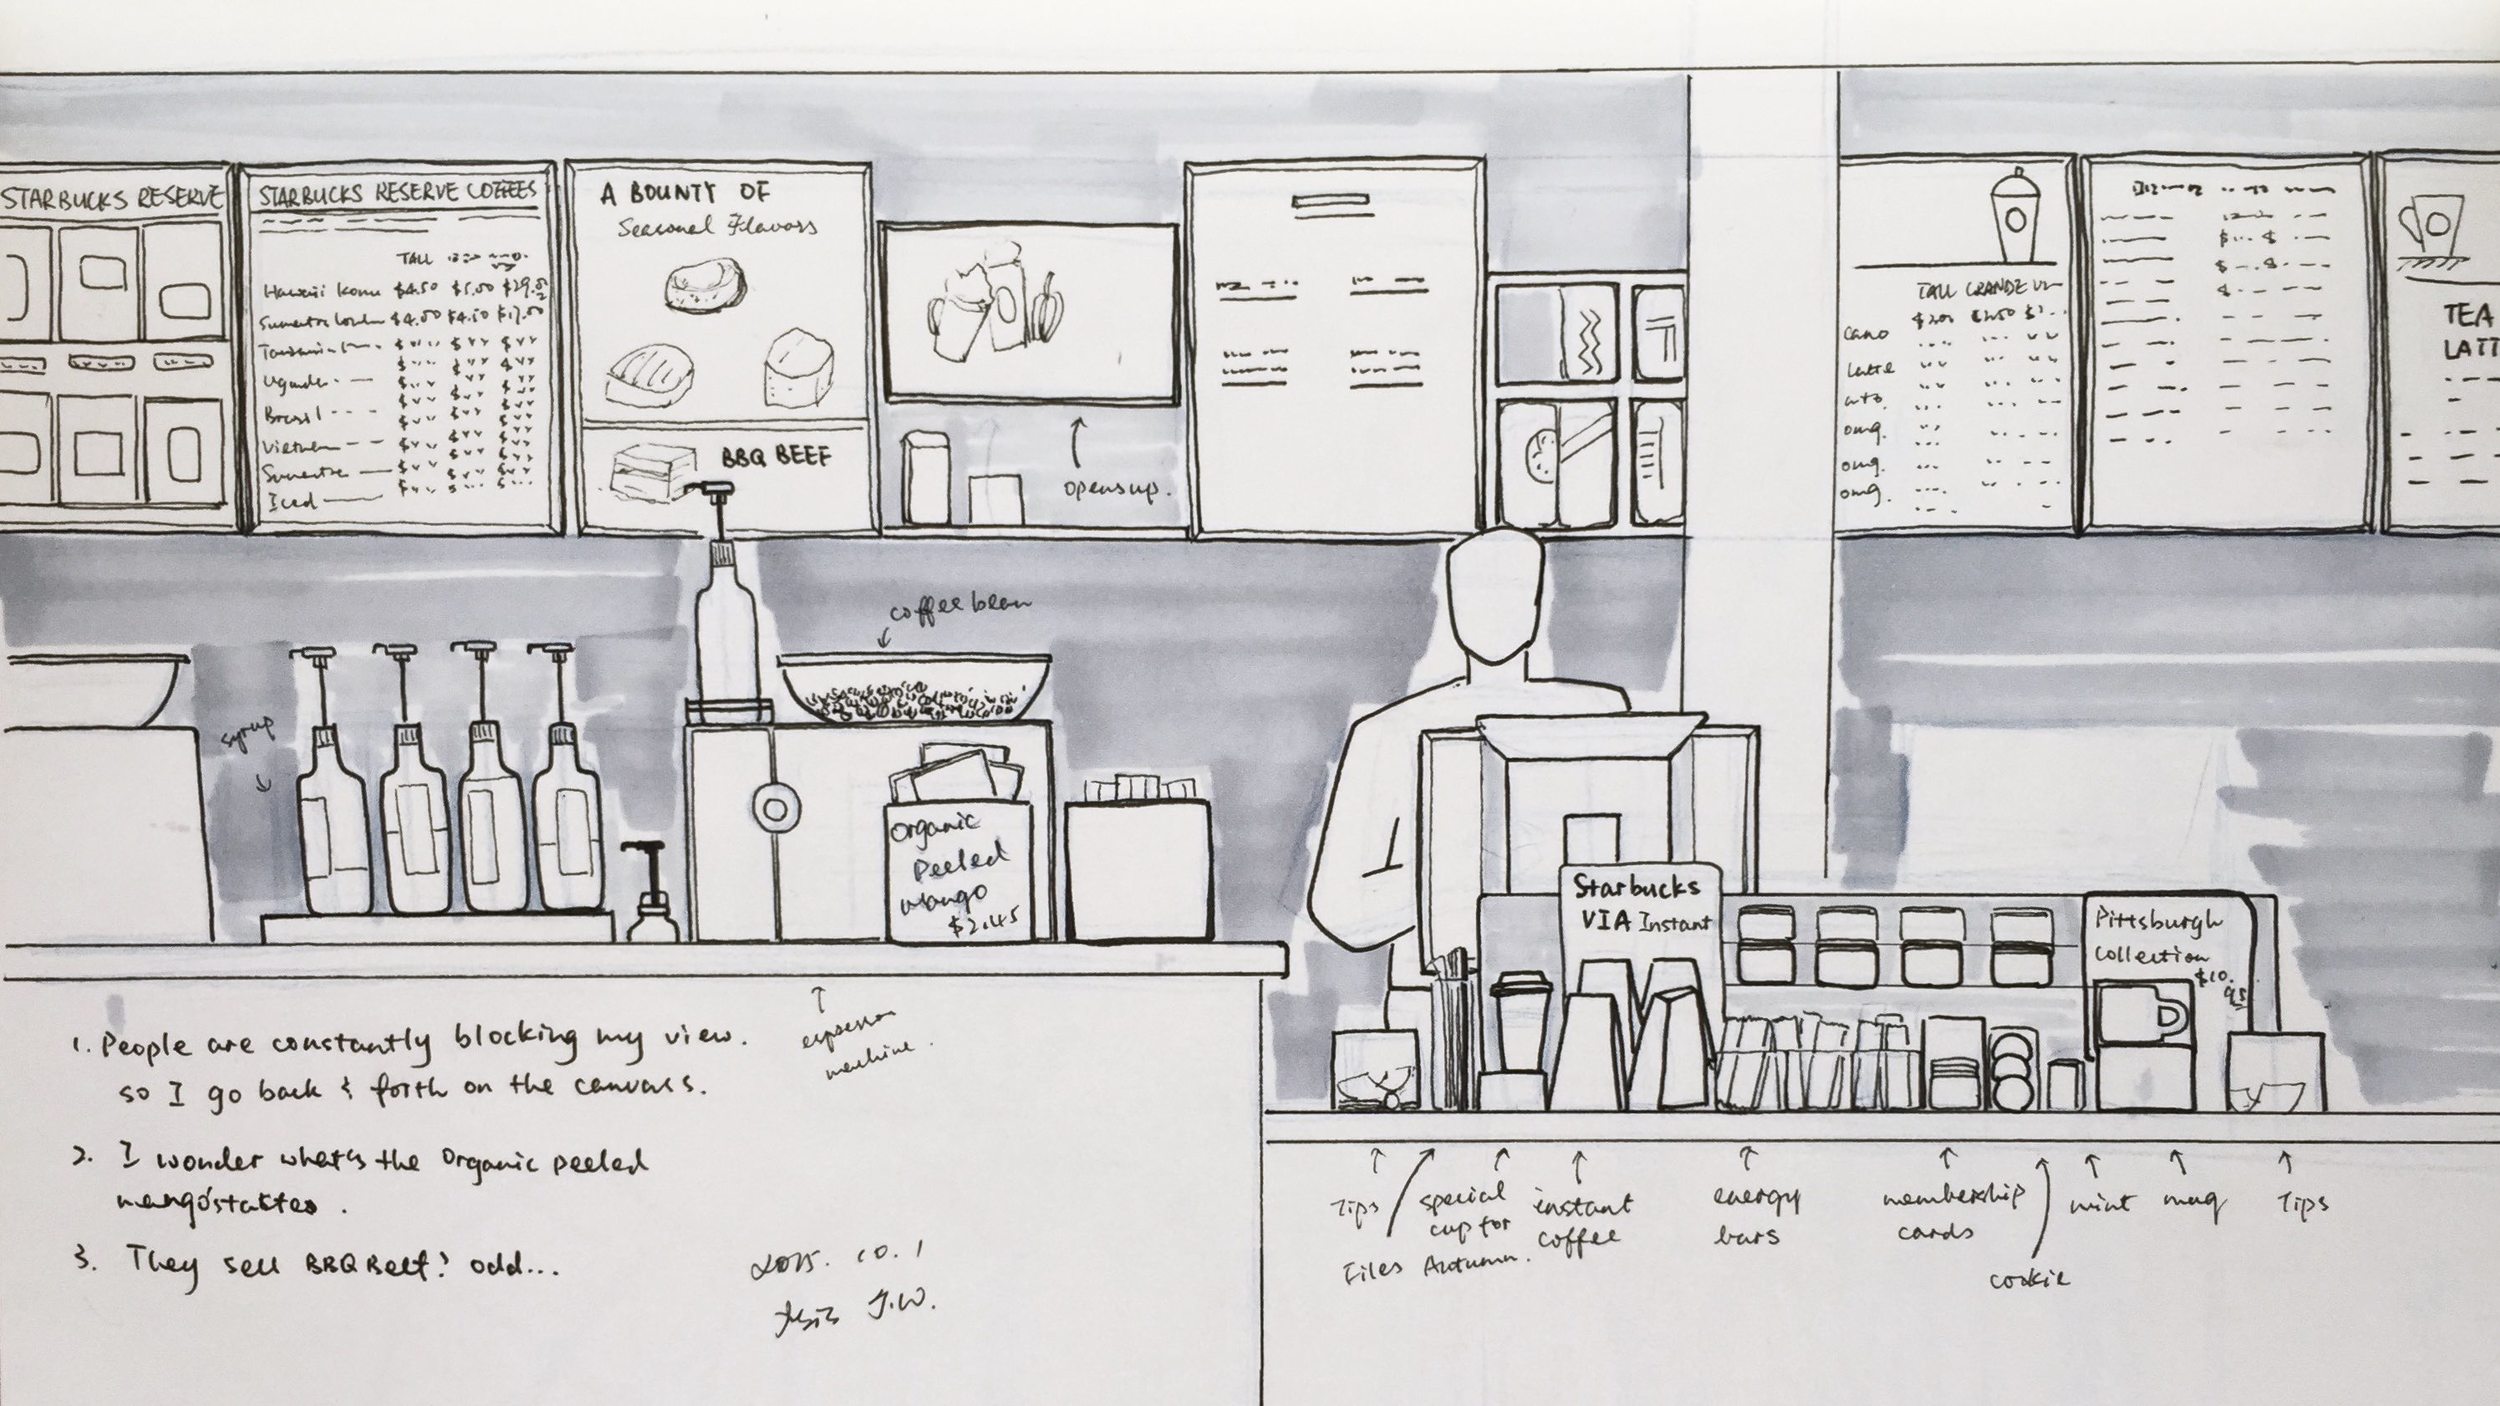 STARBUCKS RESERVE
STARBUCKS RESERVE COFFEES
TALL
Hawaii Kona $4.50 $5.00
Sumatra $4.00 $4.50 $17.00
Uganda
Brasil
Vietnam
Sumatra
Iced
A BOUNTY OF
Seasonal Flavors
BBQ BEEF
opens up.
TALL GRANDE
$2.00 $2.50 $
cano
latte
ato.
omg.
omg.
omg.
TEA
LATT
syrup
coffee bean
Organic
Peeled
Mango
$2.45
Starbucks
VIA Instant
Pittsburgh
Collection
$10.
95
espresson
machine.
1. People are constantly blocking my view.
so I go back & forth on the canvass.
2. I wonder what's the organic peeled
mango's taktes.
3. They sell BBQ Beef? odd...
2015. 10. 1
J.W.
Tips
Files
special
cup for
Autumn.
instant
coffee
energy
bars
membership
cards
cookie
mint
mug
Tips